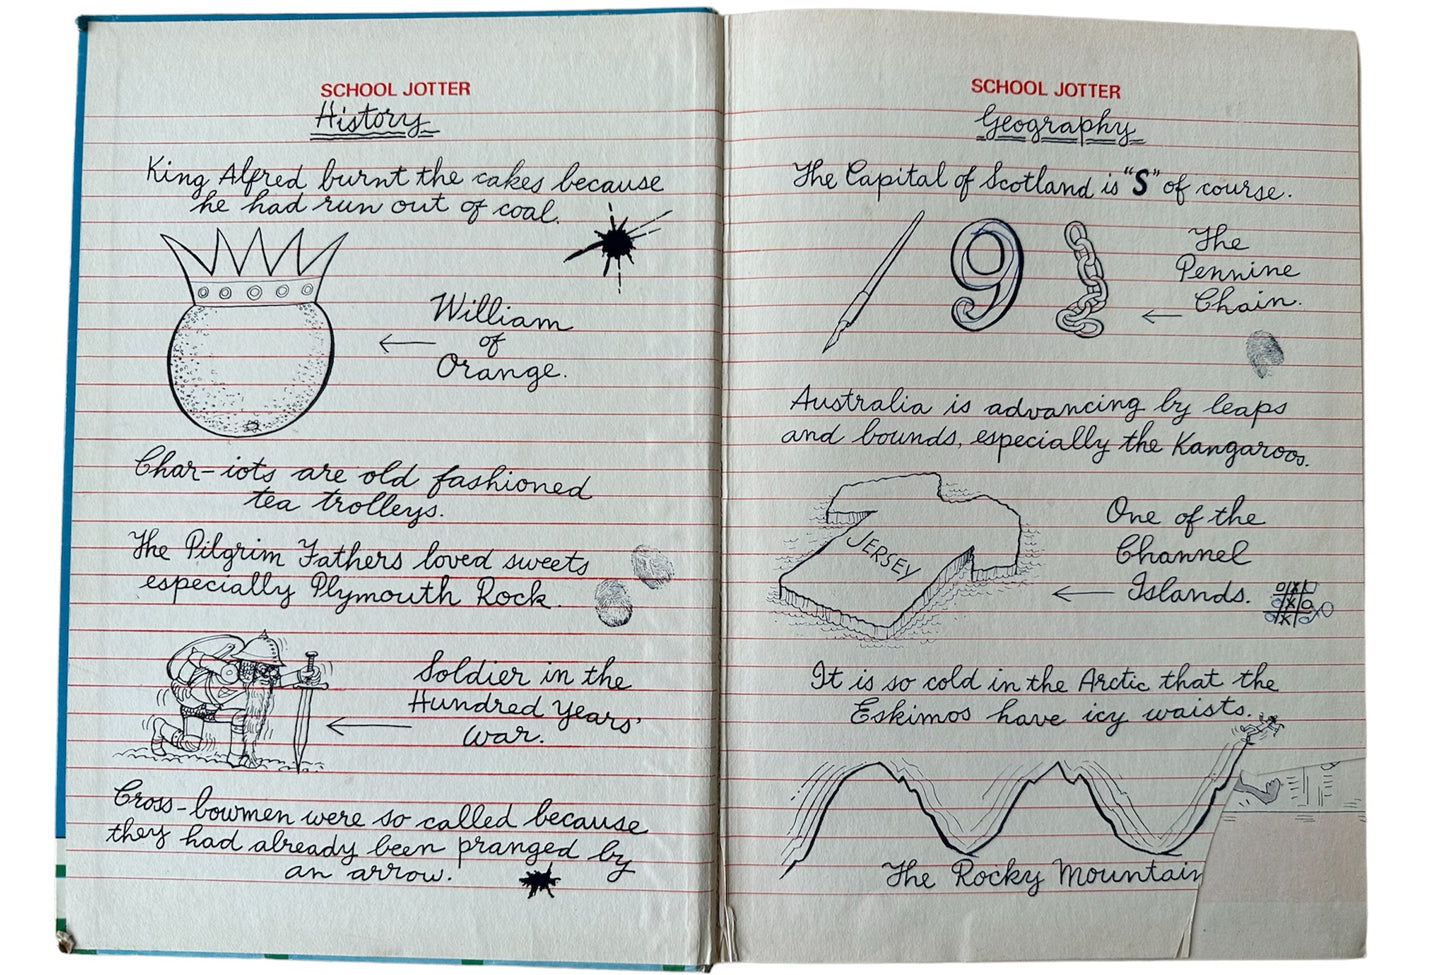 SCHOOL JOTTER
History
King Alfred burnt the cakes because
he had run out of coal.
William
of
Orange.
Char-iots are old fashioned
tea trolleys.
The Pilgrim Fathers loved sweets
especially Plymouth Rock.
Soldier in the
Hundred Years'
War.
Cross-bowmen were so called because
they had already been pranged by
an arrow.
SCHOOL JOTTER
Geography
The Capital of Scotland is "S" of course.
9
The
Pennine
Chain.
Australia is advancing by leaps
and bounds, especially the Kangaroos.
JERSEY
One of the
Channel
Islands.
It is so cold in the Arctic that the
Eskimos have icy waists.
The Rocky Mountain